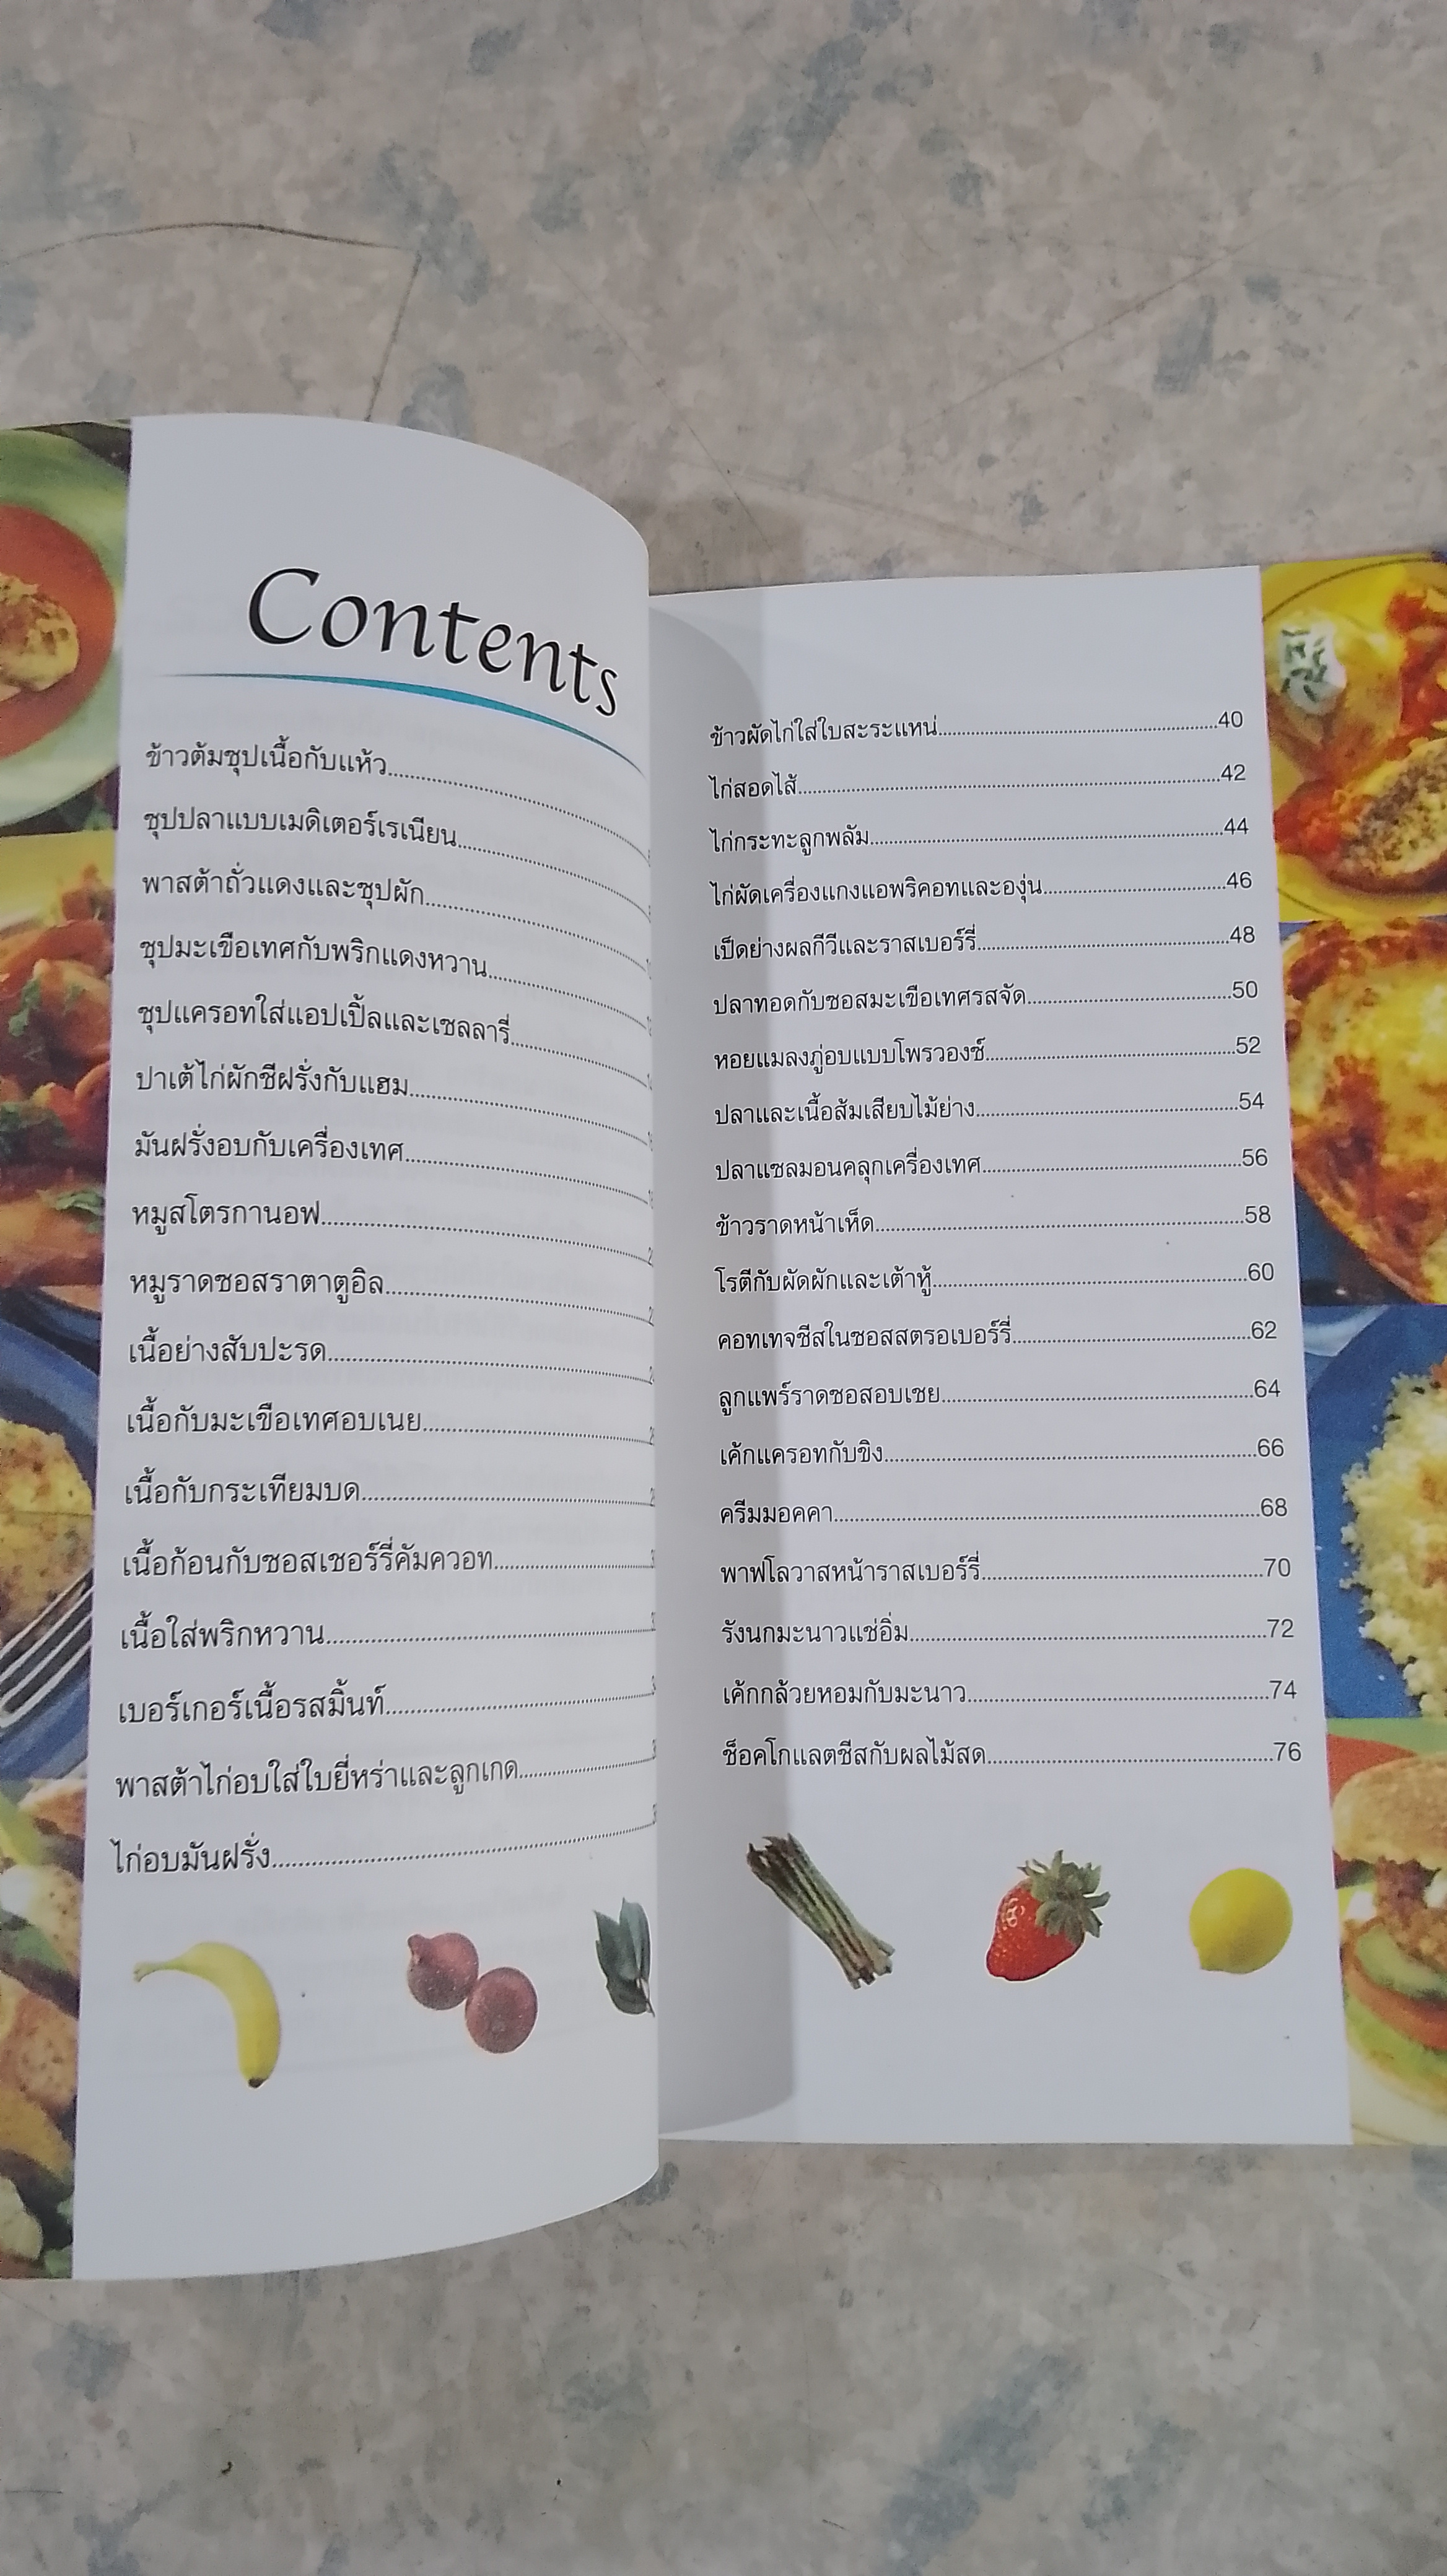 Contents
ข้าวต้มซุปเนื้อกับแห้ว
ซุปปลาแบบเมดิเตอร์เรเนียน
พาสต้าถั่วแดงและซุปผัก
ซุปมะเขือเทศกับพริกแดงหวาน
ซุปแครอทใส่แอปเปิ้ลและเซลลารี่
ปาเต้ไก่ผักชีฝรั่งกับแฮม
มันฝรั่งอบกับเครื่องเทศ
หมูสโตรกานอฟ
หมูราดซอสราตาตูอิล
เนื้อย่างสับปะรด
เนื้อกับมะเขือเทศอบเนย
เนื้อกับกระเทียมบด
เนื้อก้อนกับซอสเชอร์รี่คัมควอท
เนื้อใส่พริกหวาน
เบอร์เกอร์เนื้อรสมิ้นท์
พาสต้าไก่อบใส่ใบยี่หร่าและลูกเกด
ไก่อบมันฝรั่ง
ข้าวผัดไก่ใส่ใบสะระแหน่ 40
ไก่สอดไส้ 42
ไก่กระทะลูกพลัม 44
ไก่ผัดเครื่องแกงแอพริคอทและองุ่น 46
เป็ดย่างผลกีวีและราสเบอร์รี่ 48
ปลาทอดกับซอสมะเขือเทศรสจัด 50
หอยแมลงภู่อบแบบโพรวองซ์ 52
ปลาและเนื้อส้มเสียบไม้ย่าง 54
ปลาแซลมอนคลุกเครื่องเทศ 56
ข้าวราดหน้าเห็ด 58
โรตีกับผัดผักและเต้าหู้ 60
คอทเทจชีสในซอสสตรอเบอร์รี่ 62
ลูกแพร์ราดซอสอบเชย 64
เค้กแครอทกับขิง 66
ครีมมอคคา 68
พาฟโลวาสหน้าราสเบอร์รี่ 70
รังนกมะนาวแช่อิ่ม 72
เค้กกล้วยหอมกับมะนาว 74
ช็อคโกแลตชีสกับผลไม้สด 76